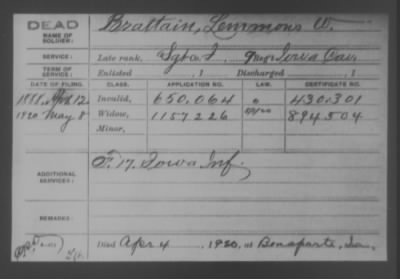 DEAD
NAME OF SOLDIER:
Brattain, Lemmons W.
SERVICE:
Late rank, Sgt Co. I, 9 Reg't Iowa Cav.
TERM OF SERVICE:
Enlisted , 1 Discharged , 1
DATE OF FILING. CLASS. APPLICATION NO. LAW. CERTIFICATE NO.
1888, 12 Invalid, 650,064 430,301
1920 May 8 Widow, 1157226 894504
Minor,
ADDITIONAL SERVICES:
F. 17. Iowa Inf.
REMARKS:
Died Apr 4, 1920, at Bonaparte, Ia.